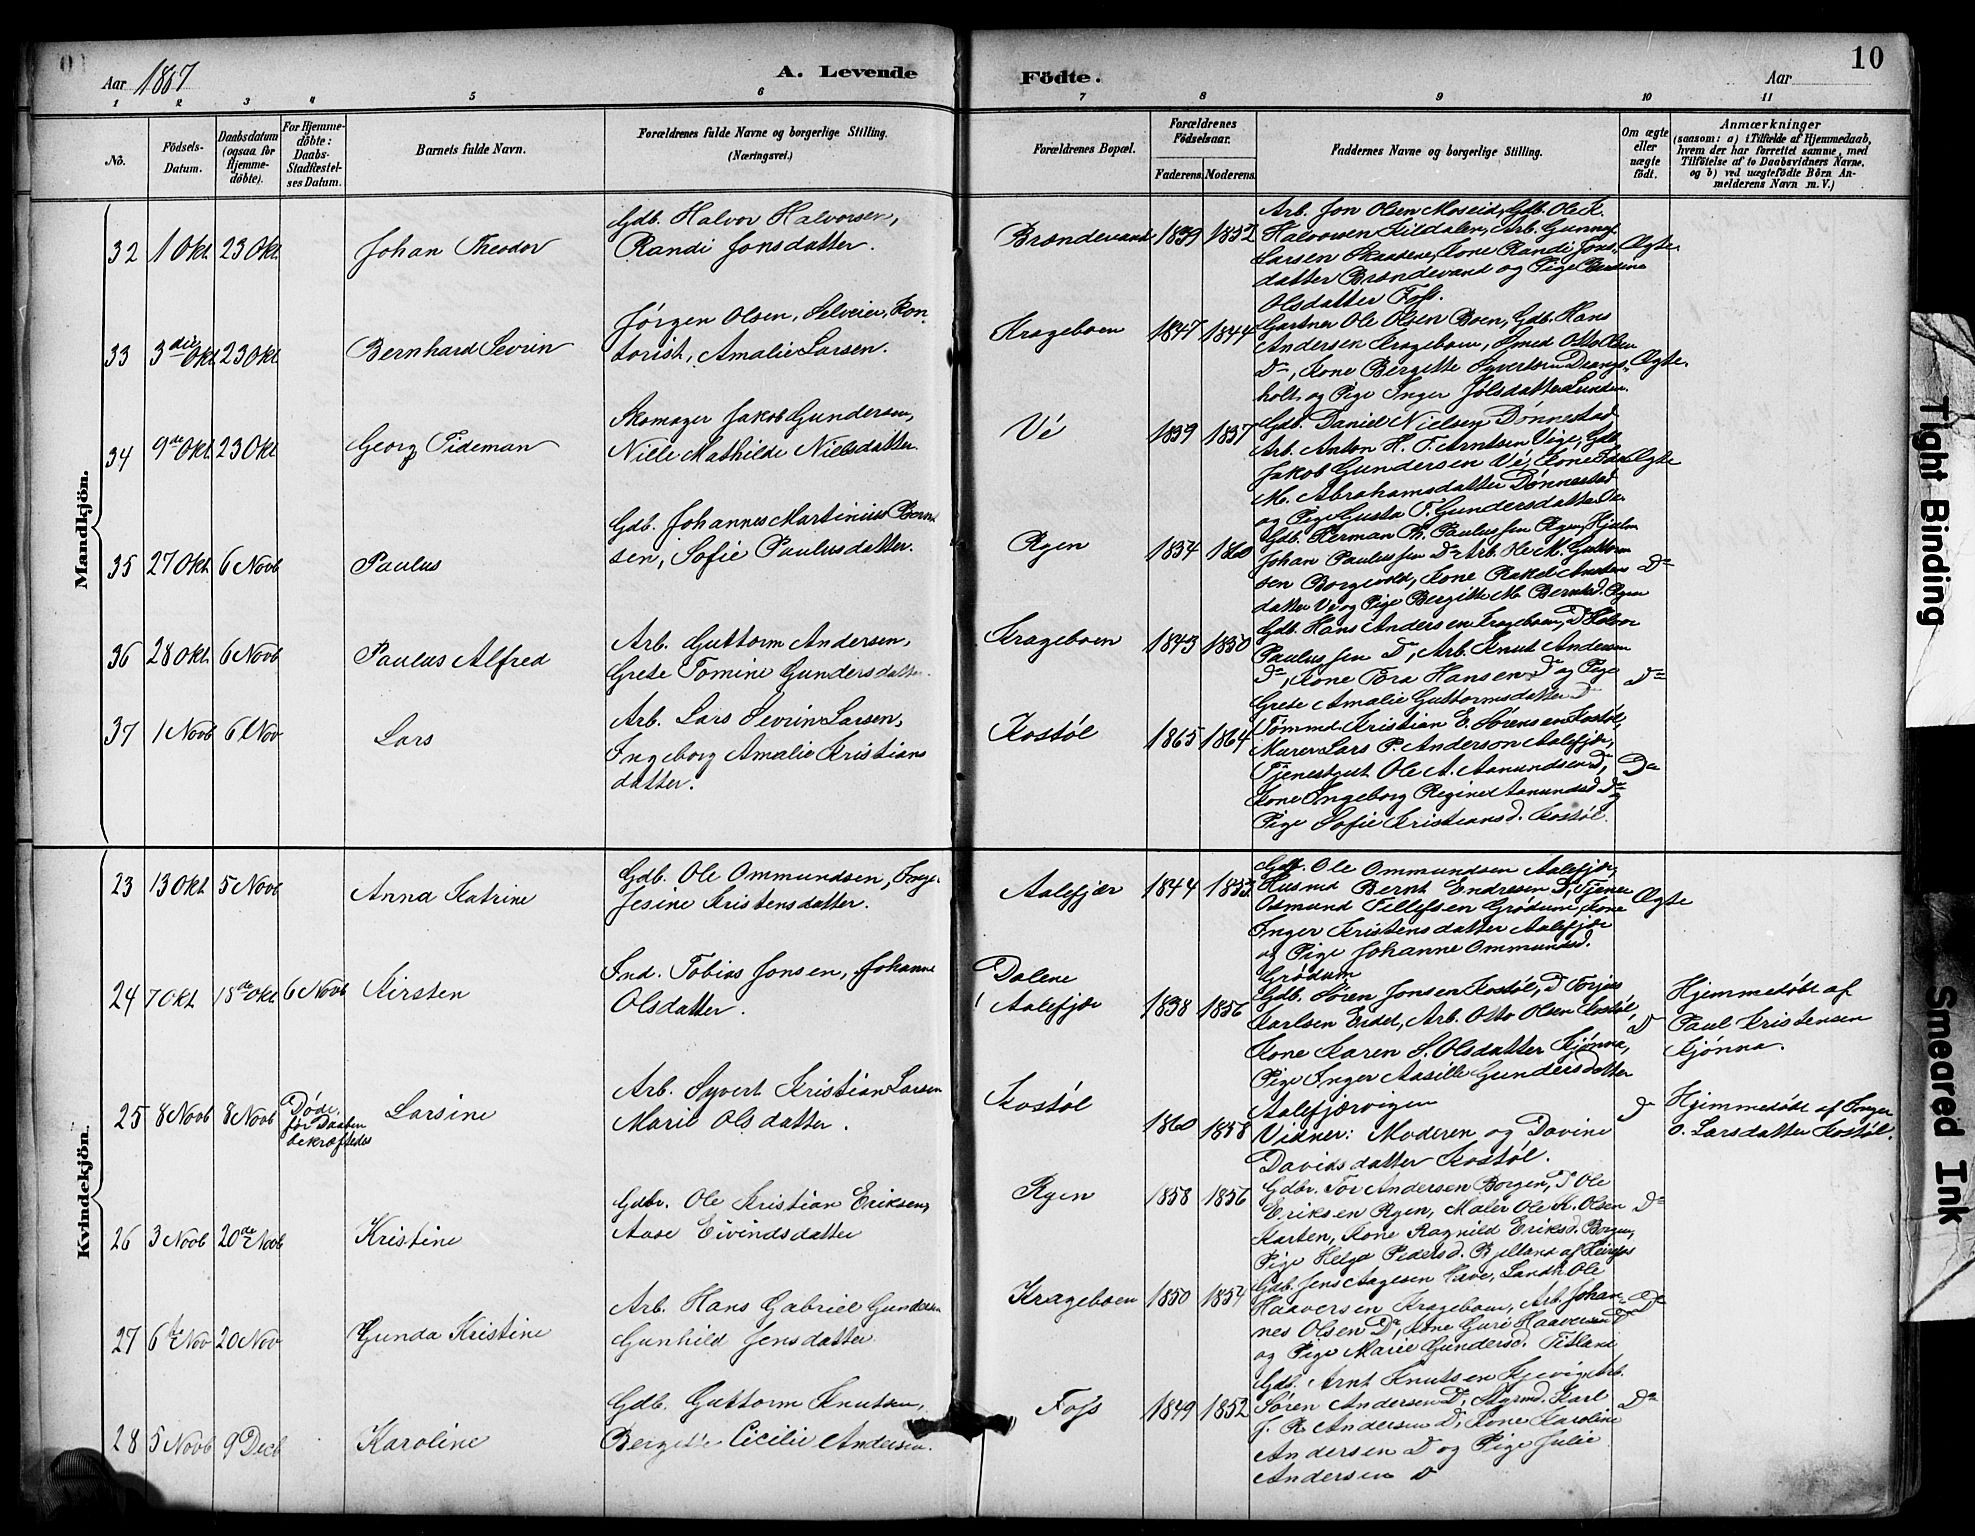 Aar 1887
A. Levende
Födte.
Aar
10
1 2 3 4 5 6 7 8 9 10 11
No.
Födsels-Datum.
Daabsdatum (ogsaa for Hjemme-döbte).
For Hjemme-döbte: Daabs-Stadfæstel-ses Datum.
Barnets fulde Navn.
Forældrenes fulde Navne og borgerlige Stilling.
(Næringsvei.)
Forældrenes Bopæl.
Forældrenes Födselsaar.
Faderens. Moderens.
Faddernes Navne og borgerlige Stilling.
Om ægte eller uægte födt.
Anmærkninger
(saasom: a) i Tilfælde af Hjemmedaab, hvem der har forrettet samme, med Tilföielse af to Daabsvidners Navne, og b) ved uægtefödte Börn An-melderens Navn m. V.)
Mandkjön.
32 1 Okt 23 Okt
Johan Theodor
Gdb. Halvor Halvorsen,
Randi Jonsdatter.
Brøndevand 1839 1852
Arb. Jon Olsen Moseid, Gdb. Ole K.
Halvorsen Kildalen, Arb. Gunnar
Larsen Skaasene, Kone Randi Jons-
datter Brøndevand og Pige Berdine
Olsdatter Foss.
Ægte
33 3die Okt 23 Okt
Bernhard Sevrin
Jørgen Olsen, Selveier, Kon-
torist, Amalie Larsen.
Krageboen 1847 1844
Gartner Ole Olsen Boen, Gdb. Hans
Andersen Krageboen, Smed Otto Olsen
Do, Kone Bergitte Syvertsen Drangs-
holt og Pige Inger Jølsdatter Lunden.
Ægte.
34 9de Okt 23 Okt
Georg Tideman
Skomager Jakob Gundersen,
Nille Mathilde Nielsdatter.
Vé 1839 1837
Gdb. Daniel Nielsen Dønnestad
Arb. Anton H. T. Arntsen Vige, Gdb.
Jakob Gundersen Vé, Kone Ida
M. Abrahamsdatter Dønnestad
og Pige Gusta T. Gundersdatter
Ægte
35 27 Okt 6 Novb
Paulus
Gdb. Johannes Martinius Bernt
sen, Sofie Paulusdatter.
Ryen 1834 1860
Gdb. Herman Th. Paulussen Ryen, Hjalm
Johan Paulussen Do Arb. Ole M. Guttorm
sen Borgevold, Kone Rakel Anstens
datter Ve og Pige Bergitte M. Berntsd. Ryen
Do
36 28 Okt 6 Novb
Paulus Alfred
Arb. Guttorm Andersen,
Grete Tomine Gundersdatter.
Krageboen 1843 1850
Gdb. Hans Andersen Krageboen, Do Halvor
Paulussen Do, Arb. Knut Andersen
Do, Kone Tora Hansen Do og Pige
Grete Amalie Guttormsdatter Do
Do
37 1 Novb 6 Nov
Lars
Arb. Lars Sevrin Larsen,
Ingeborg Amalie Kristians
datter.
Kostøl 1865 1864
Tømmd. Kristian E. Sørensen Kostøl,
Murer Lars P. Anderson Aalefjær,
Tjenestgut Ole A. Aanundsen Do,
Kone Ingeborg Regine Aanundsd Do og
Pige Sofie Kristiansd. Kostøl.
Do
Kvindekjön.
23 13 Okt 5 Novb
Anna Katrine
Gdb. Ole Ommundsen, Inge-
Jesine Kristensdatter.
Aalefjær 1844 1853
Gdb. Ole Ommundsen Aalefjær,
Husmd Bernt Endresen Do, Tjener
Osmund Tellefsen Grødum, Kone
Inger Kristensdatter Aalefjær
og Pige Johanne Ommundsd.
Grødum
Ægte
24 7 Okt 18de Okt 6 Novb
Kirsten
Ind. Tobias Jonsen, Johanne
Olsdatter.
Dalene
i Aalefjær 1838 1856
Gdb. Søren Jonsen Kostøl, Do Torjus
Karlsen Eidet, Arb. Otto Olsen Kostøl,
Kone Karen S. Olsdatter Kjønna,
Pige Inger Aasille Gundersdatter
Aalefjærvigen
Do
Hjemmedøbt af
Paul Kristensen
Kjønna.
25 8 Novb 8 Novb
Døde
før Daaben
bekræftedes
Larsine
Arb. Syvert Kristian Larsen
Marie Olsdatter.
Kostøl
1860 1858
Vidner: Moderen og Davine
Davidsdatter Kostøl.
Do
Hjemmedøbt af Inger
O. Larsdatter Kostøl.
26 3 Novb 20de Novb
Kristine
Gdbr. Ole Kristian Eriksen,
Aase Eivindsdatter
Ryen 1858 1856
Gdbr. Tor Andersen Borgen, Do Ole
Eriksen Ryen, Maler Ole K. Olsen
Karten, Kone Ragnild Eriksd. Borgen,
Pige Helga Pedersd. Bjelland af
Do
27 6te Nov 20 Nov
Gunda Kristine
Arb. Hans Gabriel Gundersen
Gunhild Jensdatter
Krageboen 1850 1854
Gdb. Jens Aagesen Kæve, Landh. Ole
Haaversen Krageboen, Arb. Johan-
nes Olsen Do, Kone Guri Haaversen Do
og Pige Marie Gundersd. Titland
Do
28 5 Novb 9 Decb
Karoline
Gdb. Guttorm Knutsen,
Bergitte Cicilie Andersen.
Foss 1849 1852
Gdb. Arnt Knutsen Kjevig, Arb.
Søren Andersen Do, Styrmd. Karl
J. R. Andersen Do, Kone Karoline
Andersen Do og Pige Julie
Andersen Do
Do
Tight Binding
Smeared Ink